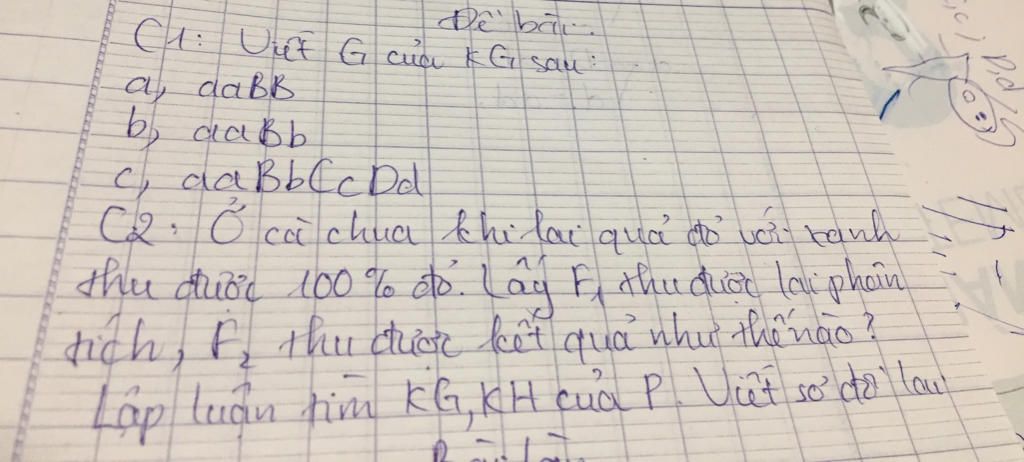 Đề bài:
C1: Viết G của KG sau:
a, aaBB
b, aaBb
c, aaBbCcDd
C2: Ở cà chua khi lai quả đỏ với xanh
thu được 100% đỏ. Lấy F1 thu được lai phân
tích, F2 thu được kết quả như thế nào?
Lập luận tìm KG, KH của P. Viết sơ đồ lai